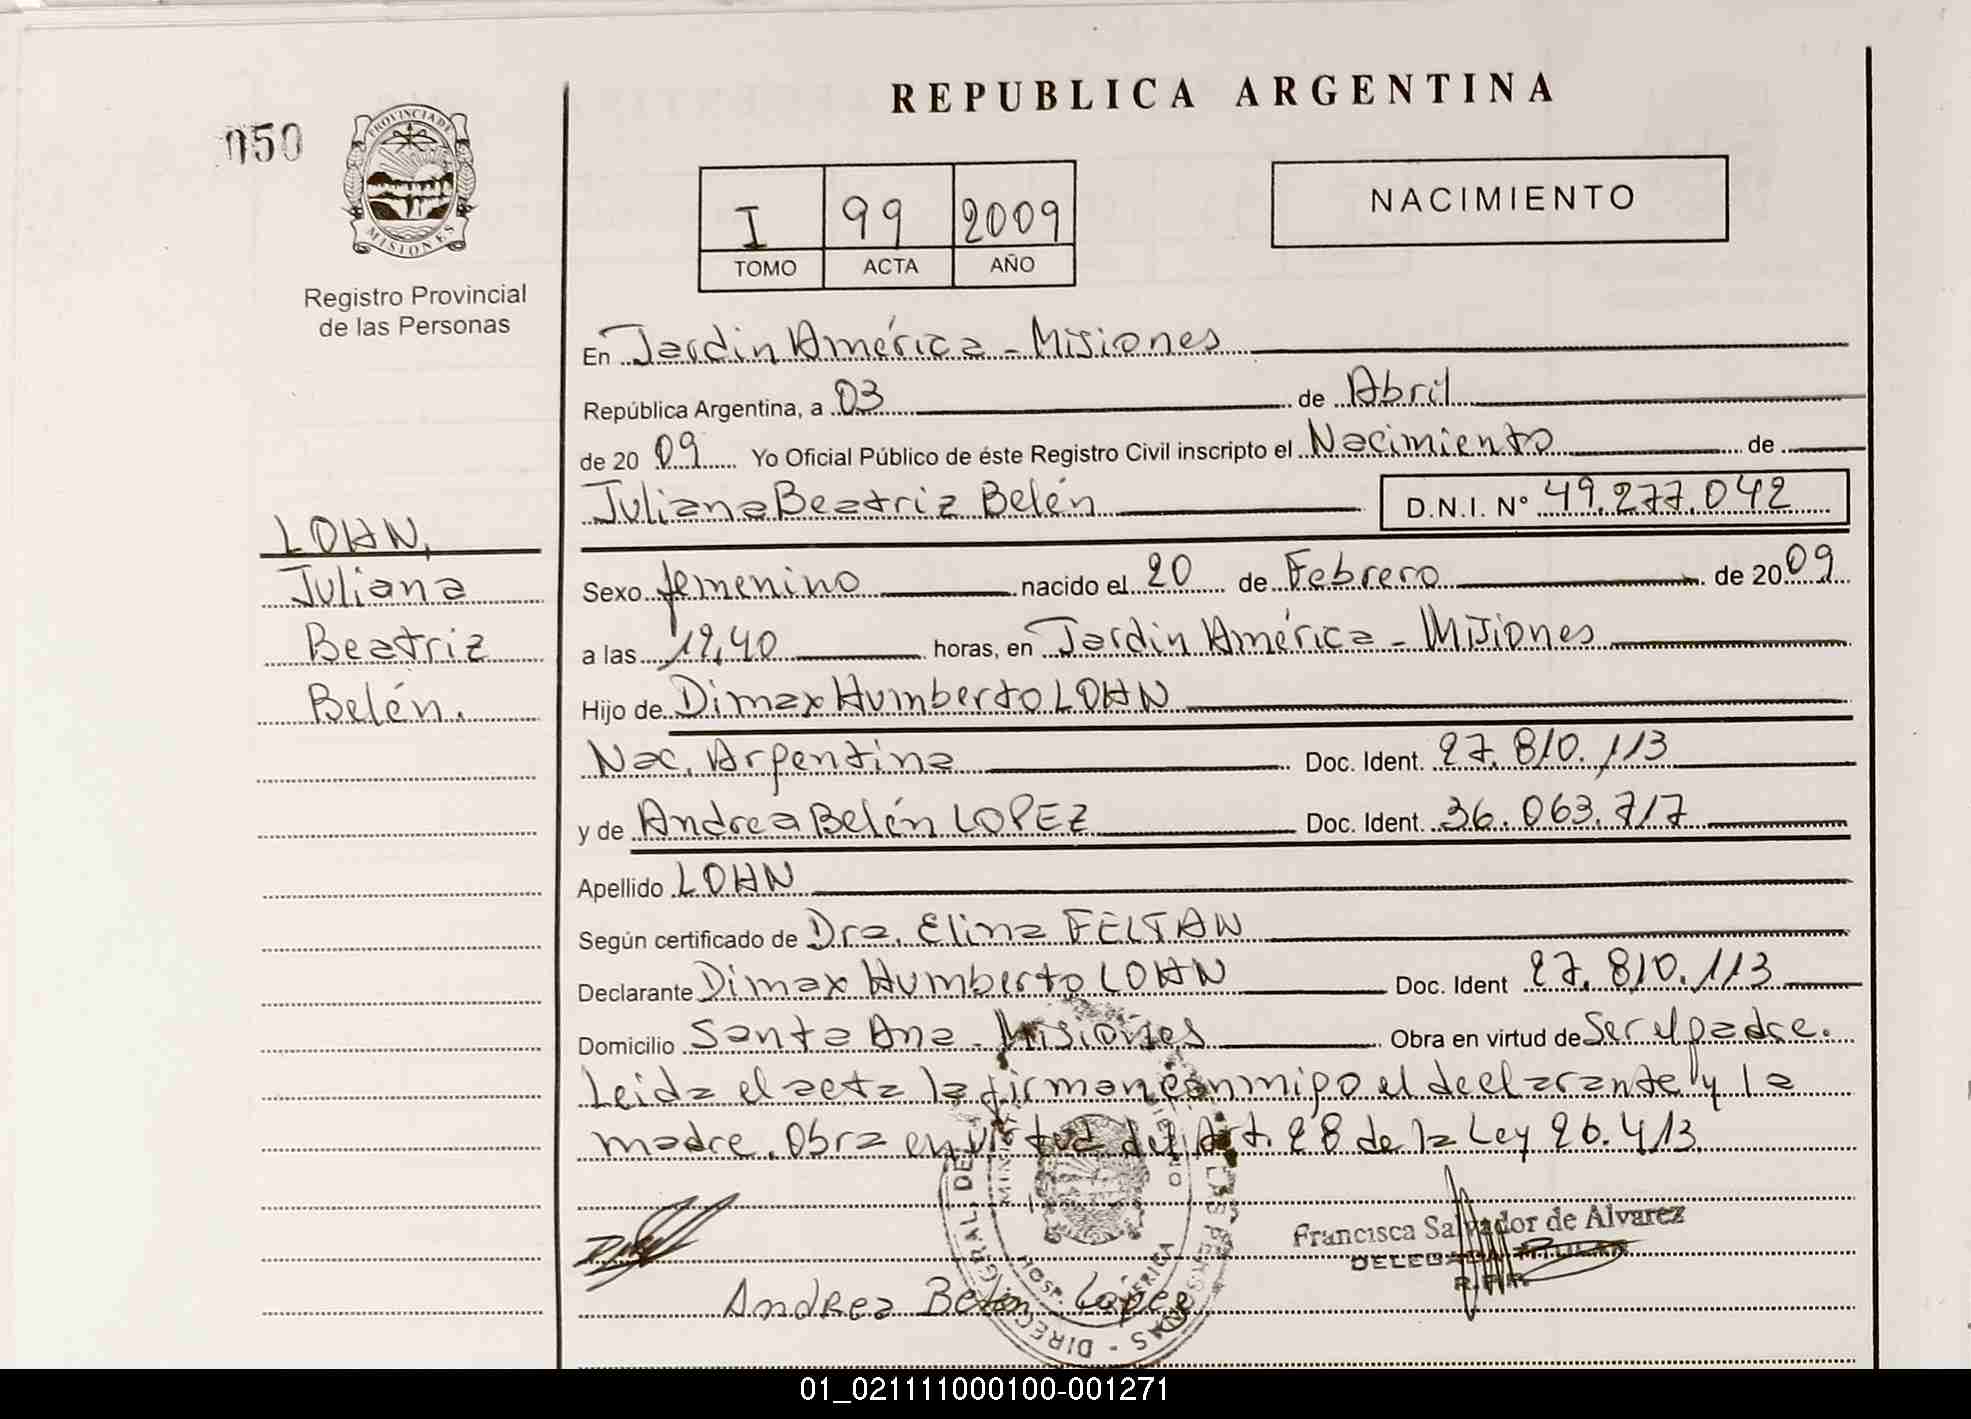 REPUBLICA ARGENTINA
050
PROVINCIA DE
MISIONES
Registro Provincial
de las Personas
I 99 2009
TOMO ACTA AÑO
NACIMIENTO
En Jardin América - Misiones
República Argentina, a 03 de Abril
de 20 09 Yo Oficial Público de éste Registro Civil inscripto el Nacimiento de
Juliana Beatriz Belén D.N.I. N° 49.277.042
LOHN,
Juliana
Beatriz
Belén.
Sexo femenino nacido el 20 de Febrero de 20 09
a las 19,40 horas, en Jardin América - Misiones
Hijo de Dimax Humberto LOHN
Nac. Argentina Doc. Ident. 27.810.113
y de Andrea Belén LOPEZ Doc. Ident. 36.063.717
Apellido LOHN
Según certificado de Dra. Elina FELTAN
Declarante Dimax Humberto LOHN Doc. Ident 27.810.113
Domicilio Santa Ana - Misiones Obra en virtud de Ser el padre.
Leida el acta la firman conmigo el declarante y la
madre. Obra en virtud del Art. 28 de la Ley 26.413.
Francisca Salvador de Alvarez
DELEGADA TITULAR
R.P.P.
Andrea Belen Lopez
01_021111000100-001271